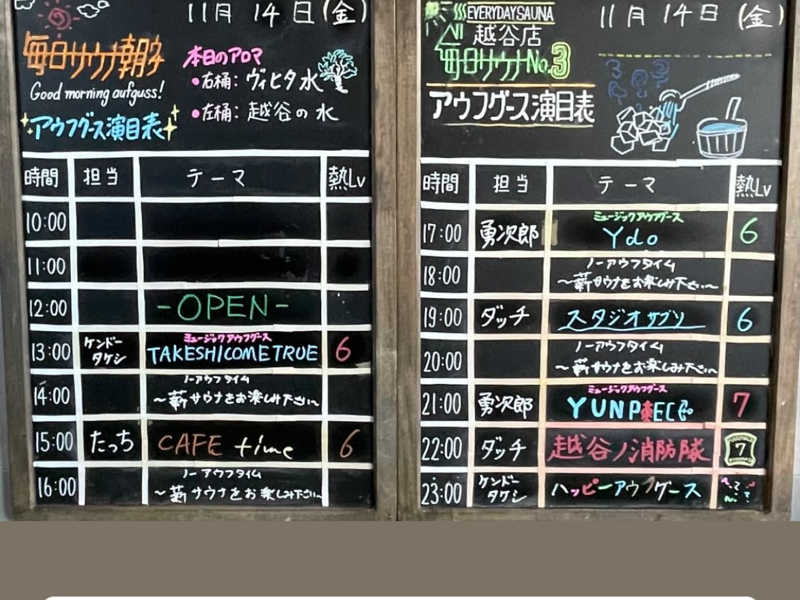 11月 14日(金)
毎日サウナ朝
Good morning aufguss!
アウフグース演目表
本日のアロマ
・右桶: ヴィヒタ水
・左桶: 越谷の水
時間 担当 テーマ 熱Lv
10:00
11:00
12:00 -OPEN-
13:00 ケンドータケシ ミュージックアウフグース TAKESHICOMETRUE 6
14:00 ノーアウフタイム
〜薪サウナをお楽しみ下さい〜
15:00 たっち CAFE time 6
16:00 ノーアウフタイム
〜薪サウナをお楽しみ下さい〜
EVERYDAYSAUNA
越谷店
11月 14日(金)
毎日サウナNo.3
アウフグース演目表
時間 担当 テーマ 熱Lv
17:00 勇次郎 ミュージックアウフグース Ydo 6
18:00 ノーアウフタイム
〜薪サウナをお楽しみ下さい〜
19:00 ダッチ スタジオサブソ 6
20:00 ノーアウフタイム
〜薪サウナをお楽しみ下さい〜
21:00 勇次郎 ミュージックアウフグース 7
22:00 ダッチ 越谷ノ消防隊 7
23:00 ケンドータケシ ハッピーアウフグース